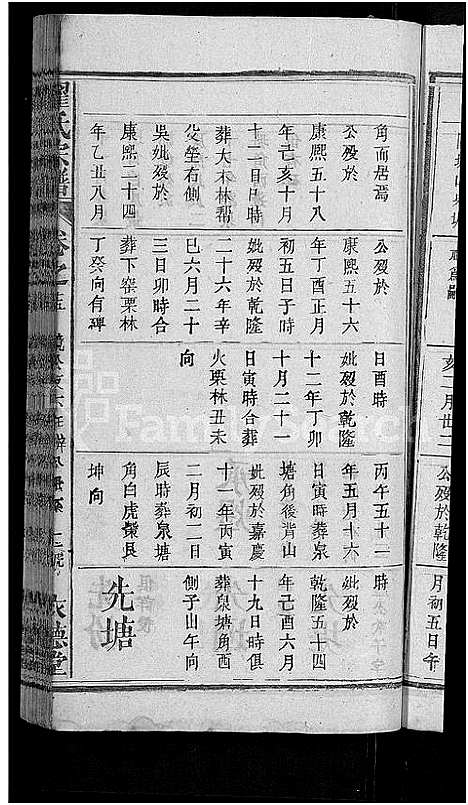 角而居焉
公歿於
康熙五十八
年己亥十月
十二日巳時
葬大木林帮
公塋右側
吳妣歿於
康熙二十四
年乙丑八月
公歿於
康熙五十六
年丁酉正月
初五日子時
妣歿於乾隆
二十六年辛
巳六月二十
三日卯時合
葬下窑栗林
丁癸向有碑
日酉時
妣歿於乾隆
十二年丁卯
十月二十一
日寅時合葬
火栗林丑未
向
丙午五十一
年五月十六
日寅時葬泉
塘角後背山
妣歿於嘉慶
十一年丙寅
二月初二日
辰時葬泉塘
角白虎嘴艮
坤向
時
妣歿於
乾隆五十四
年己酉六月
十九日時俱
葬泉塘角酉
側子山午向
先塘
氏宗譜
卷之十五
敦德堂
亥二月廿二
公歿於乾隆
月初五日午
FamilySearch